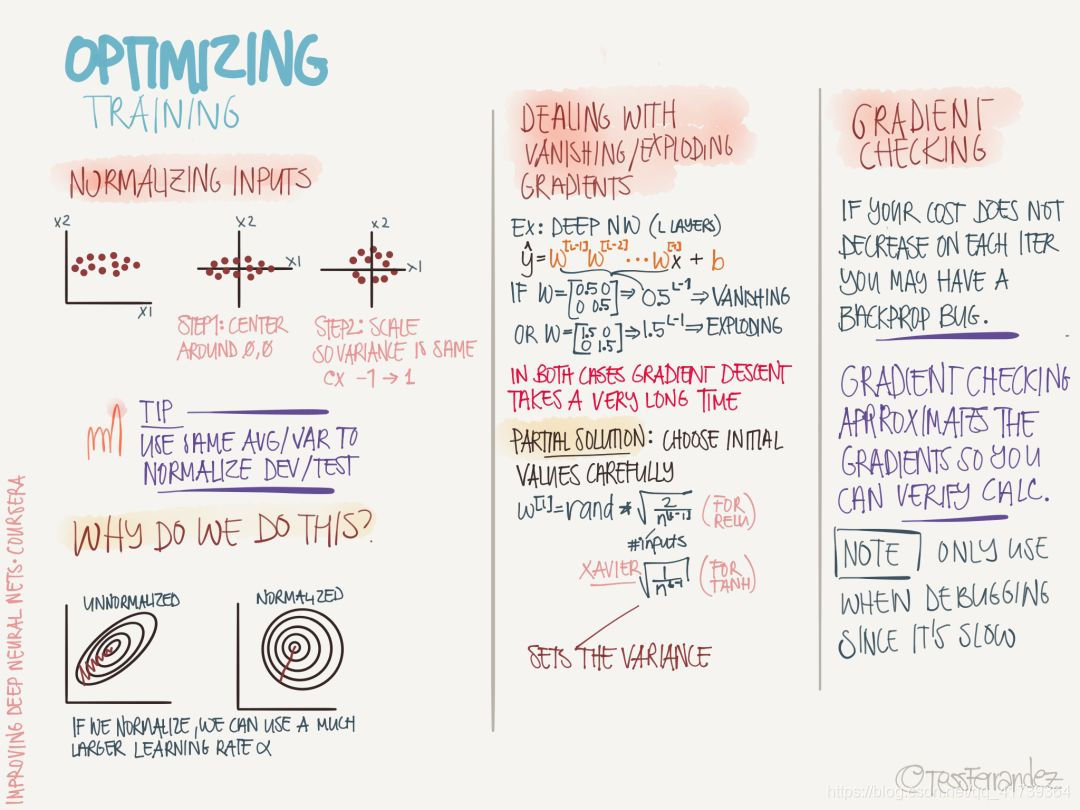 OPTIMIZING
TRAINING
NORMALIZING INPUTS
X2
X1
X2
X1
STEP1: CENTER
AROUND 0,0
X2
X1
STEP2: SCALE
SO VARIANCE IS SAME
EX -1 → 1
TIP
USE SAME AVG/VAR TO
NORMALIZE DEV/TEST
WHY DO WE DO THIS?
UNNORMALIZED
NORMALIZED
IF WE NORMALIZE, WE CAN USE A MUCH
LARGER LEARNING RATE α
IMPROVING DEEP NEURAL NETS · COURSERA
DEALING WITH
VANISHING/EXPLODING
GRADIENTS
EX: DEEP NW (L LAYERS)
ŷ = W[L-1] W[L-2] ... W[1] x + b
IF W = [0.5 0
0 0.5] ⇒ 0.5 L-1 ⇒ VANISHING
OR W = [1.5 0
0 1.5] ⇒ 1.5 L-1 ⇒ EXPLODING
IN BOTH CASES GRADIENT DESCENT
TAKES A VERY LONG TIME
PARTIAL SOLUTION: CHOOSE INITIAL
VALUES CAREFULLY
W[l] = rand * √2/n[l-1] (FOR
RELU)
#inputs
XAVIER √1/n[l-1] (FOR
TANH)
SETS THE VARIANCE
GRADIENT
CHECKING
IF YOUR COST DOES NOT
DECREASE ON EACH ITER
YOU MAY HAVE A
BACKPROP BUG.
GRADIENT CHECKING
APPROXIMATES THE
GRADIENTS SO YOU
CAN VERIFY CALC.
NOTE ONLY USE
WHEN DEBUGGING
SINCE IT'S SLOW
©TessFerrandez